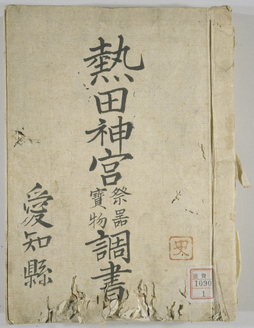 熱田神宮祭器寶物調書
愛知縣
1090
1